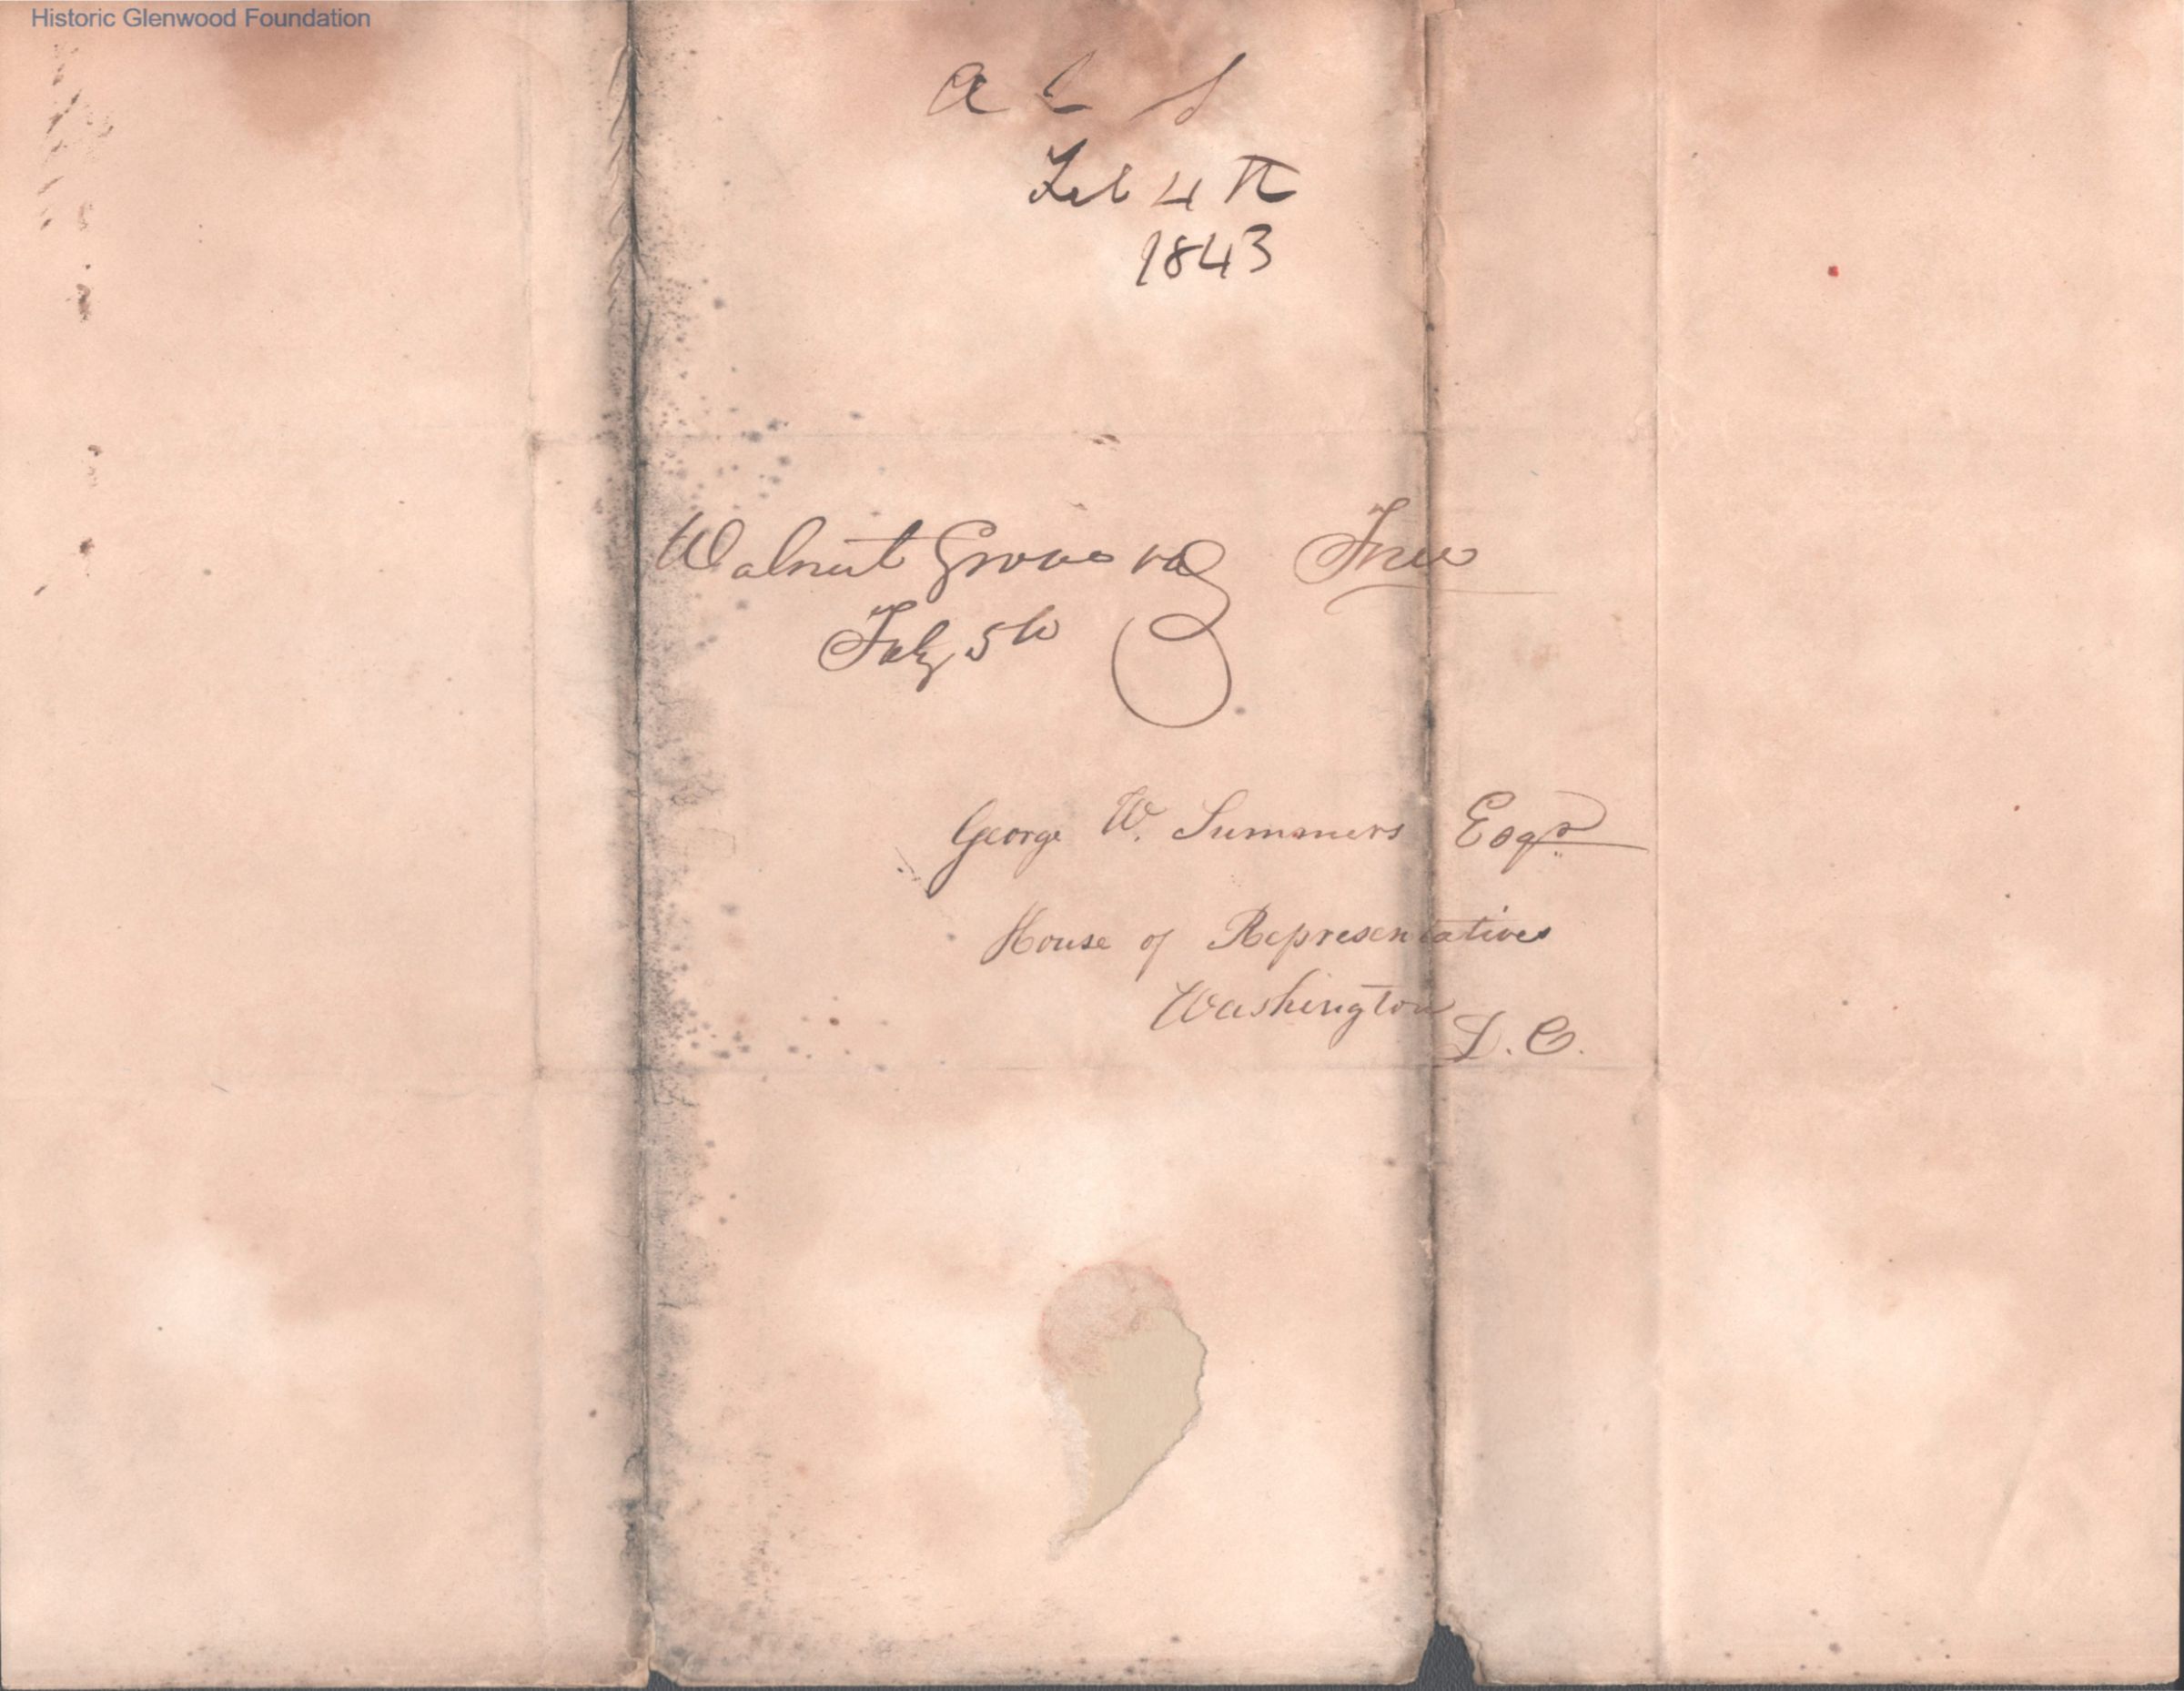 Historic Glenwood Foundation
A L S
Feb 4th
1843
Walnut Grove va Free
Feby 5th
George W. Summers Esqr
House of Representatives
Washington
D.C.